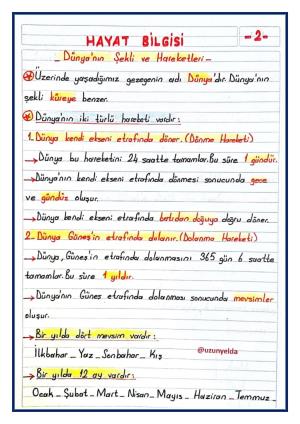 HAYAT BİLGİSİ
-2-
- Dünya'nın Şekli ve Hareketleri -
Üzerinde yaşadığımız gezegenin adı Dünya'dır. Dünya'nın
şekli küreye benzer.
Dünya'nın iki türlü hareketi vardır:
1. Dünya kendi ekseni etrafında döner. (Dönme Hareketi)
→ Dünya bu hareketini 24 saatte tamamlar. Bu süre 1 gündür.
→ Dünya'nın kendi ekseni etrafında dönmesi sonucunda gece
ve gündüz oluşur.
→ Dünya kendi ekseni etrafında batıdan doğuya doğru döner.
2. Dünya Güneş'in etrafında dolanır. (Dolanma Hareketi)
→ Dünya, Güneş'in etrafında dolanmasını 365 gün 6 saatte
tamamlar. Bu süre 1 yıldır.
→ Dünya'nın Güneş etrafında dolanması sonucunda mevsimler
oluşur.
→ Bir yılda dört mevsim vardır:
İlkbahar - Yaz - Sonbahar - Kış
@uzunyelda
→ Bir yılda 12 ay vardır:
Ocak - Şubat - Mart - Nisan - Mayıs - Haziran - Temmuz -